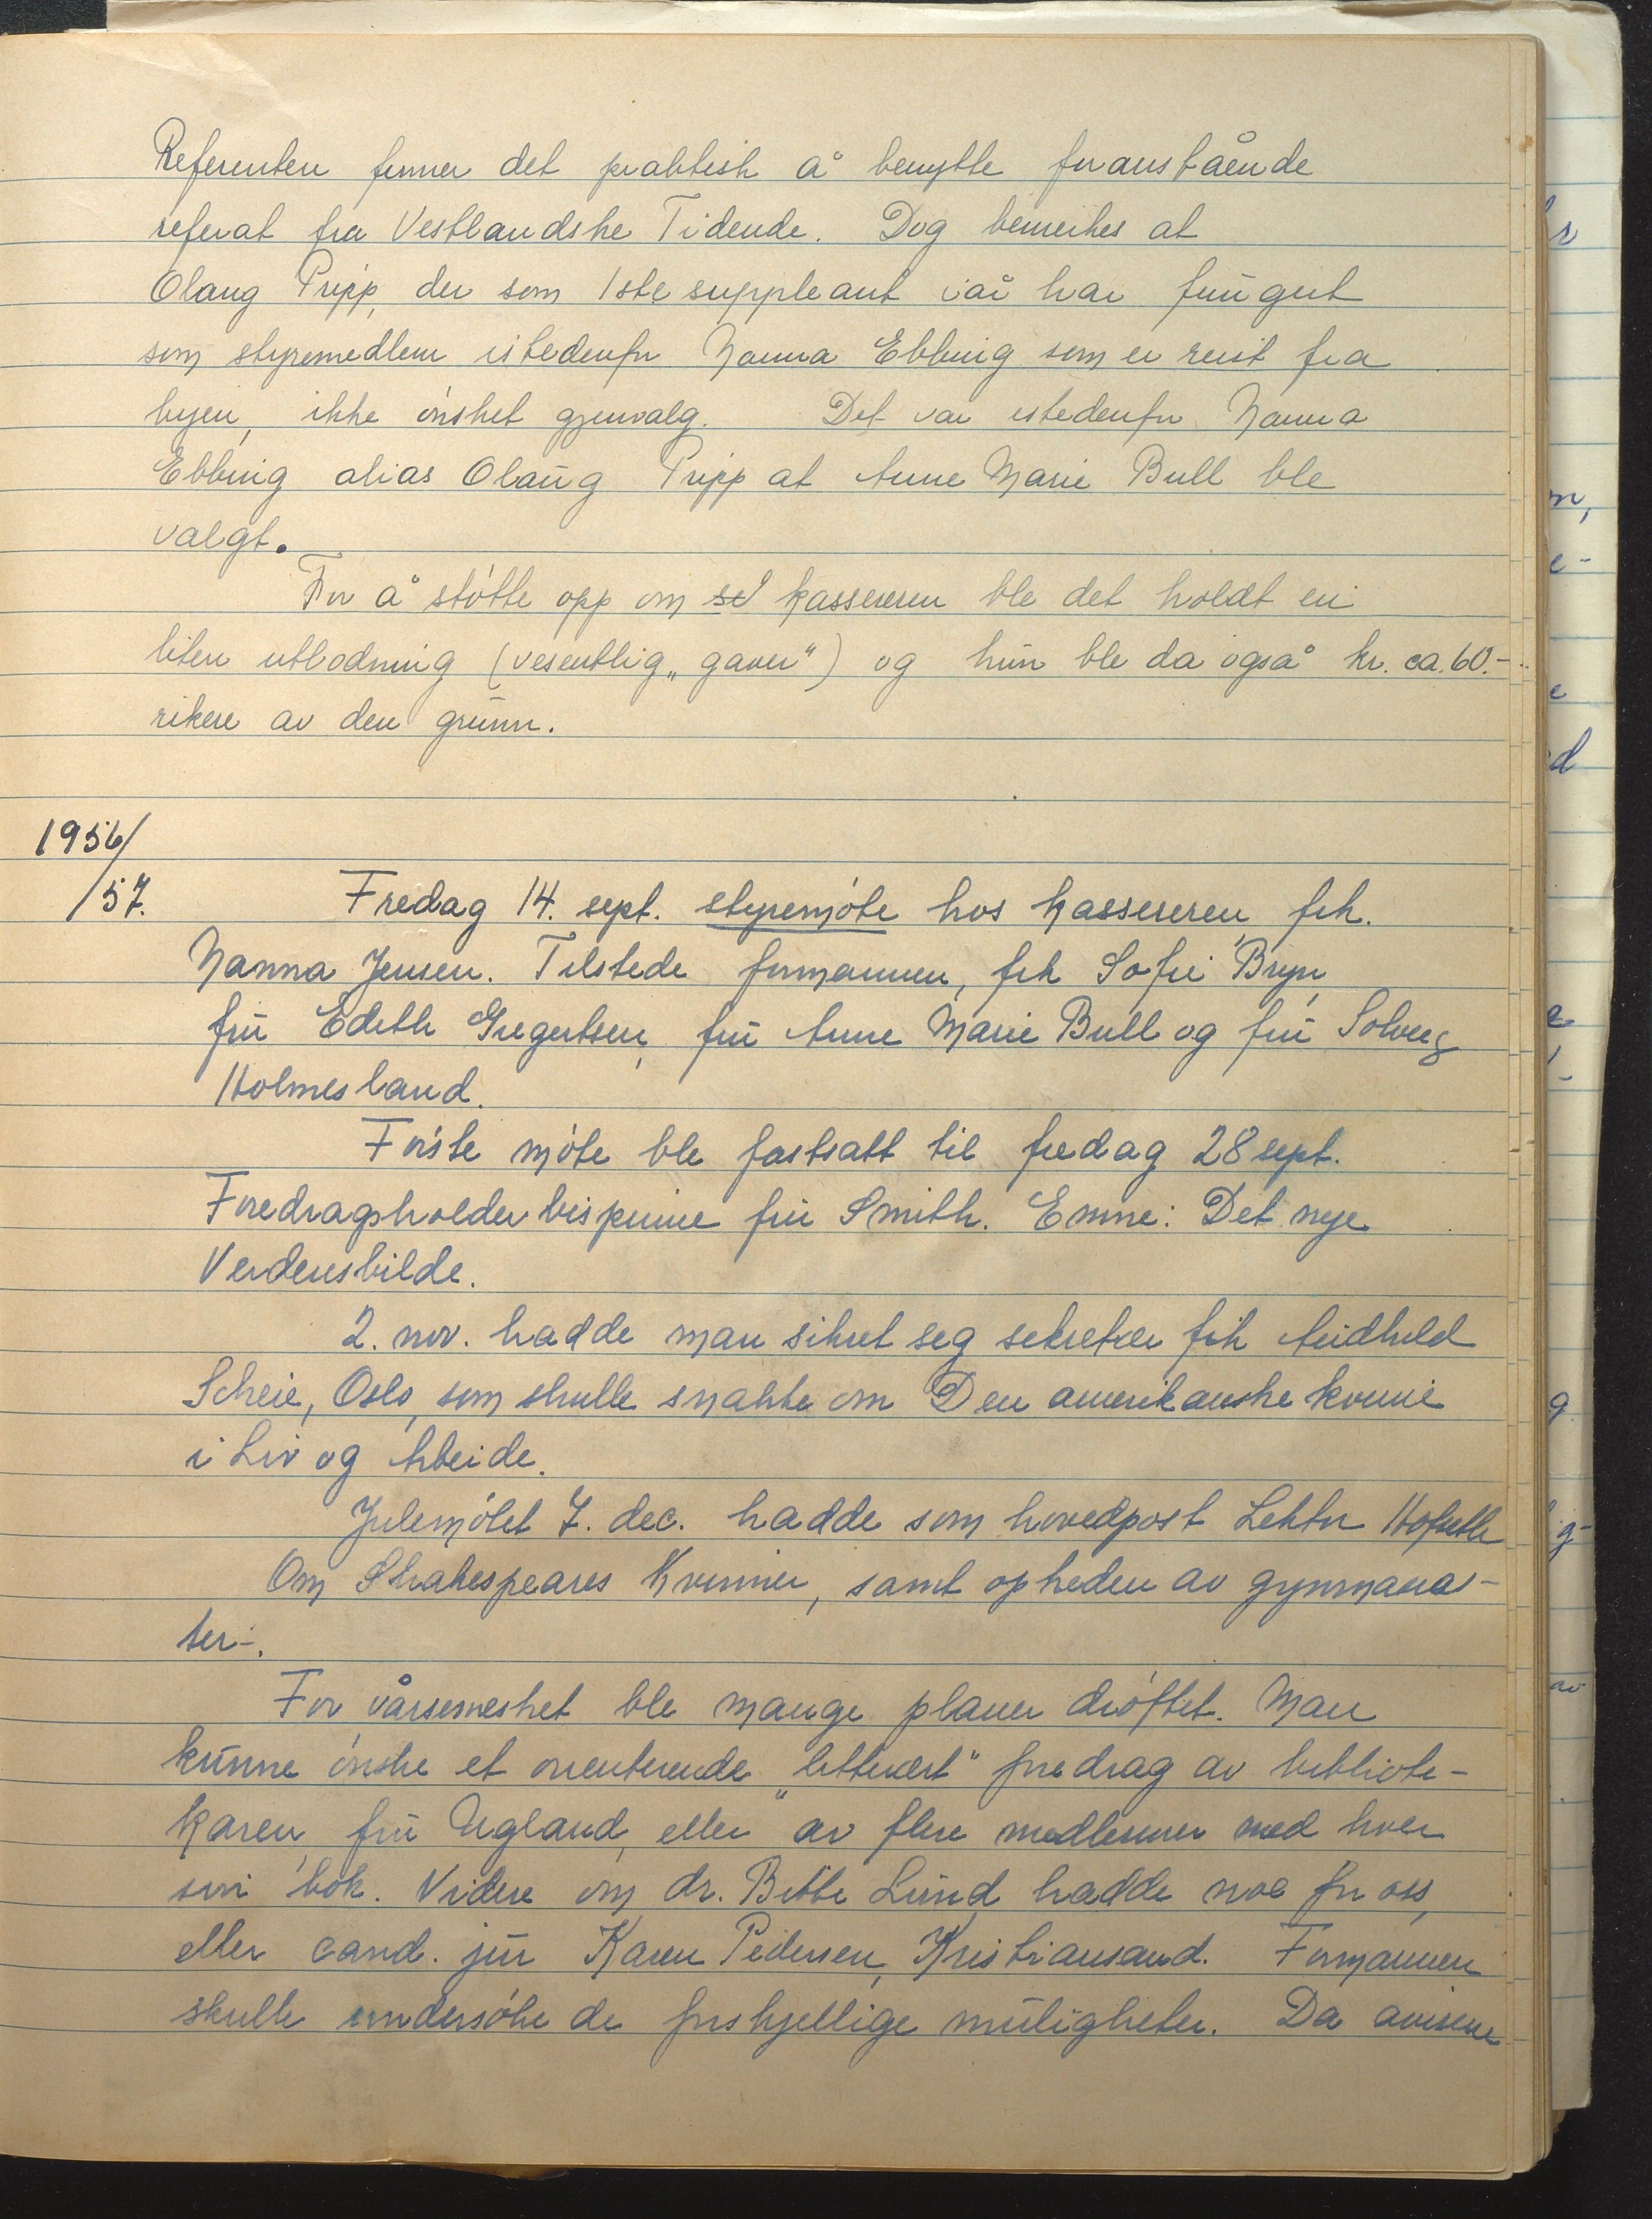 Referenten finner det praktisk å benytte foranstående
referat fra Vestlandske Tidende. Dog bemerkes at
Olaug Pripp, der som 1ste suppleant i år har fungert
som styremedlem istedenfor Nanna Ebbing som er reist fra
byen, ikke ønsket gjenvalg. Det var istedenfor Nanna
Ebbing alias Olaug Pripp at Anne Marie Bull ble
valgt.
For å støtte opp om kassereren ble det holdt en
liten utlodning (vesentlig „gaver") og hun ble da også kr. ca. 60.-
rikere av den grunn.
1956/
/57.
Fredag 14. sept. styremøte hos kassereren, frk.
Nanna Jensen. Tilstede formannen, frk Sofie Bryn,
fru Edith Gregertsen, fru Anne Marie Bull og fru Solveig
Holmesland.
Første møte ble fastsatt til fredag 28 sept.
Foredragsholder bispinne fru Smith. Emne: Det nye
Verdensbilde.
2. nov. hadde man sikret seg sekretær frk Audhild
Scheie, Oslo, som skulle snakke om Den amerikanske kvinne
i Liv og Arbeide.
Julemøtet 7. dec. hadde som hovedpost Lektor
Om Shakespeares Kvinner, samt opheden av gymnasia-
ter-.
For vårsemestret ble mange planer drøftet. Man
kunne ønske et orienterende „litterært" foredrag av bibliote-
karen, fru Ugland, eller av flere medlemmer med hver
sin bok. Videre om dr. Bitte Lund hadde noe for oss,
eller cand. jur Karen Pedersen, Kristiansand. Formannen
skulle undersøke de forskjellige muligheter. Da avisene